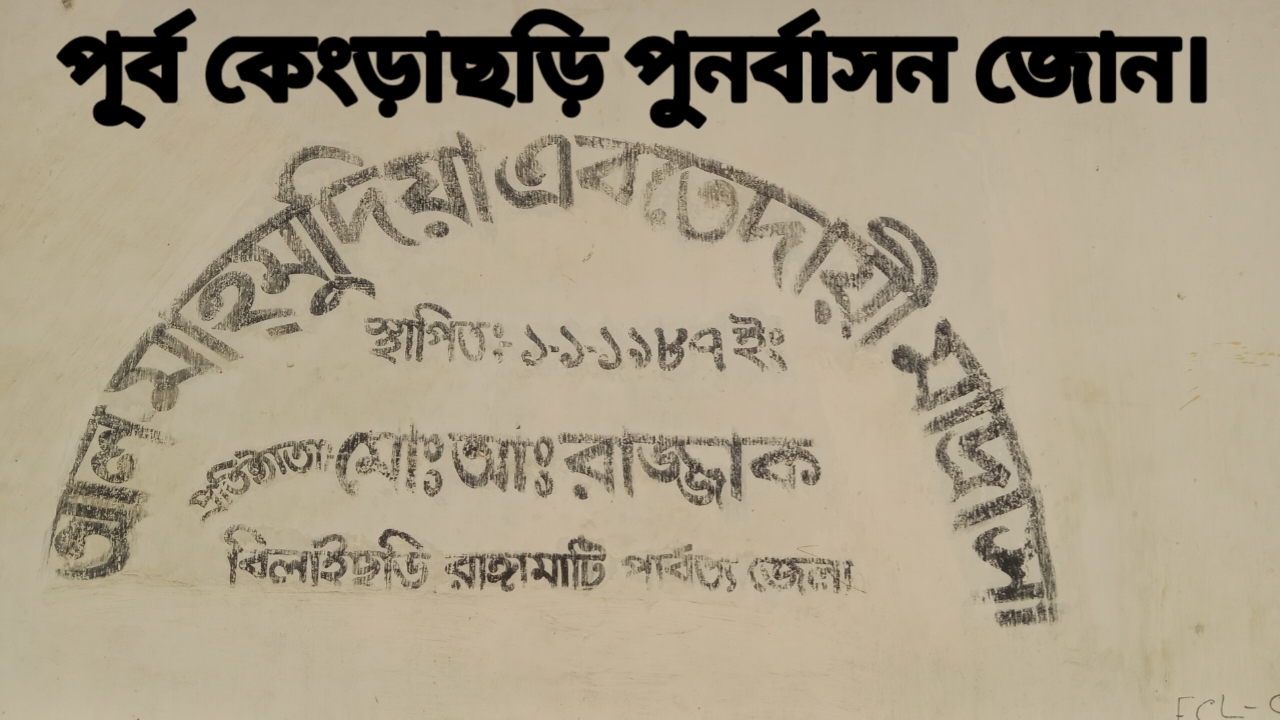 পূর্ব কেংড়াছড়ি পুনর্বাসন জোন।
আল মাহমুদিয়া এবতেদায়ী মাদ্রাসা
স্থাপিতঃ ১-১-১৯৮৭ ইং
প্রতিষ্ঠাতা মোঃ আঃ রাজ্জাক
বিলাইছড়ি রাঙ্গামাটি পার্বত্য জেলা